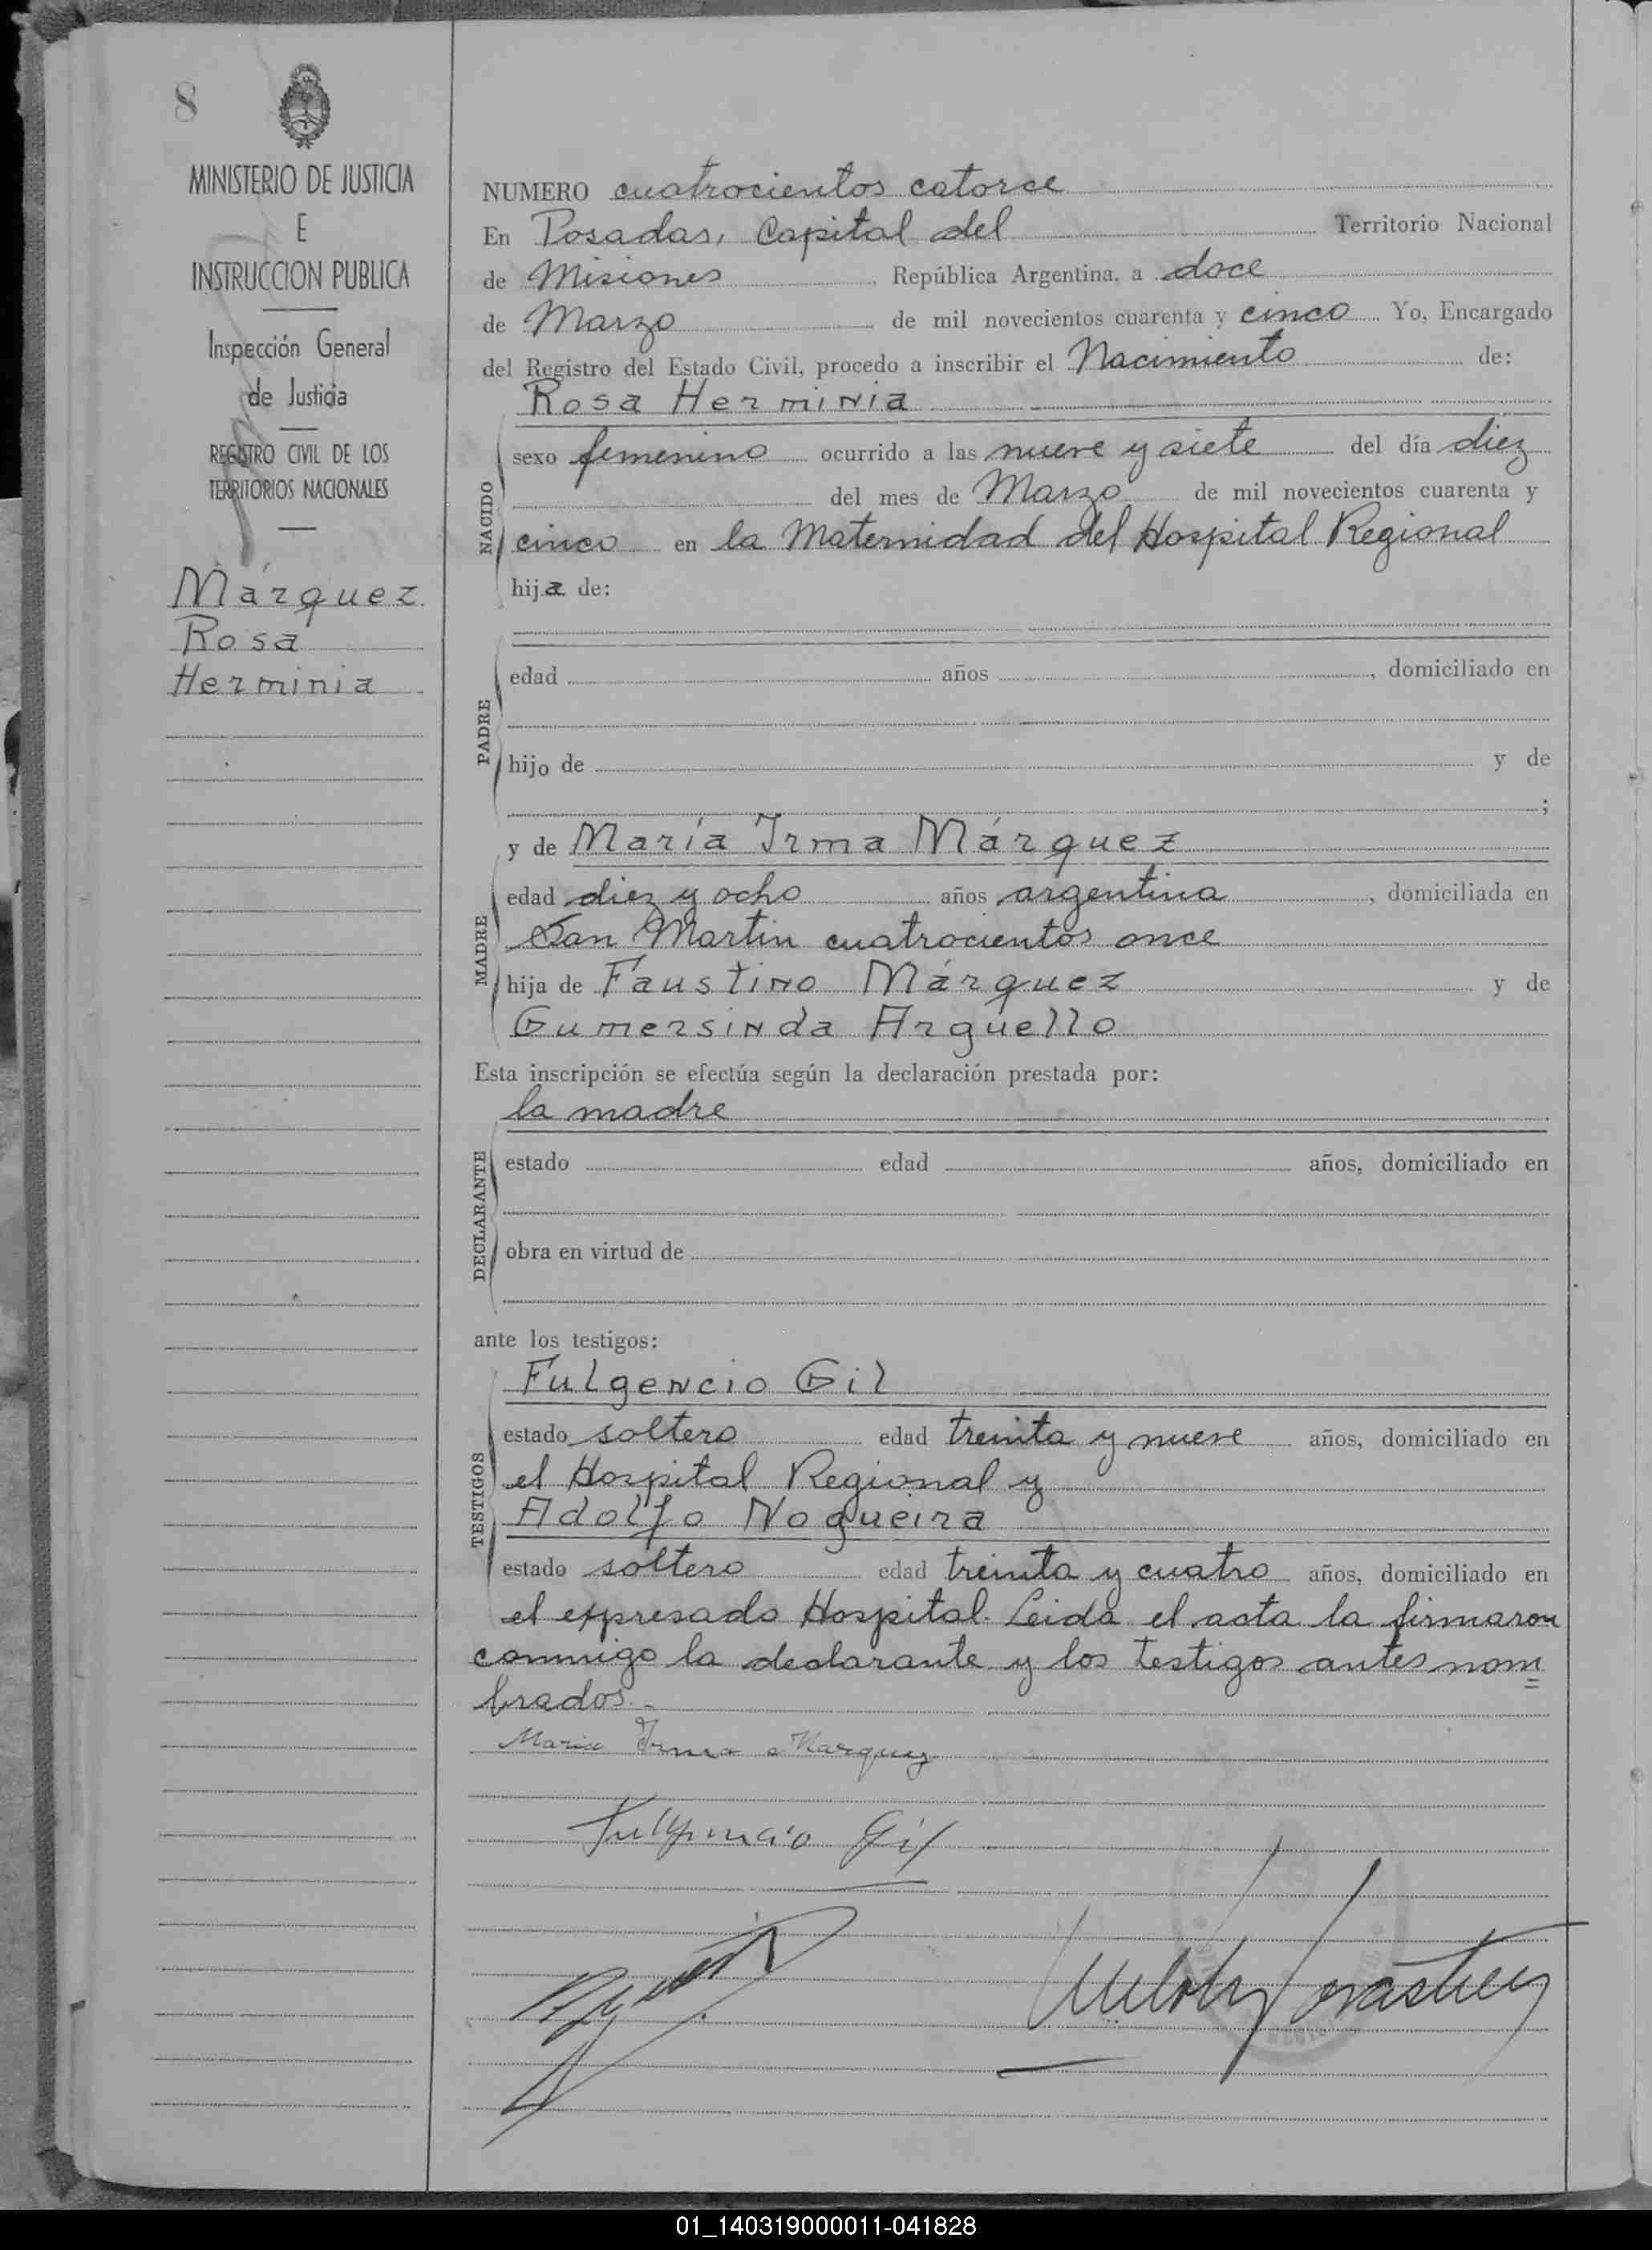 8
MINISTERIO DE JUSTICIA
E
INSTRUCCION PUBLICA
Inspección General
de Justicia
REGISTRO CIVIL DE LOS
TERRITORIOS NACIONALES
Márquez
Rosa
Herminia
NUMERO cuatrocientos catorce
En Posadas, Capital del Territorio Nacional
de Misiones, República Argentina, a doce
de Marzo de mil novecientos cuarenta y cinco Yo, Encargado
del Registro del Estado Civil, procedo a inscribir el Nacimiento de:
Rosa Herminia
NACIDO
sexo femenino ocurrido a las nueve y siete del día diez
del mes de Marzo de mil novecientos cuarenta y
cinco en la Maternidad del Hospital Regional
hija de:
PADRE
edad años , domiciliado en
hijo de y de
;
y de María Irma Márquez
MADRE
edad diez y ocho años argentina, domiciliada en
San Martin cuatrocientos once
hija de Faustino Márquez y de
Gumersinda Argüello
Esta inscripción se efectúa según la declaración prestada por:
la madre
DECLARANTE
estado edad años, domiciliado en
obra en virtud de
ante los testigos:
Fulgencio Gil
TESTIGOS
estado soltero edad treinta y nueve años, domiciliado en
el Hospital Regional y
Adolfo Nogueira
estado soltero edad treinta y cuatro años, domiciliado en
el expresado Hospital. Leida el acta la firmaron
conmigo la declarante y los testigos antes nom=
brados.-
Maria Irma Marquez
Fulgencio Gil
01_140319000011-041828